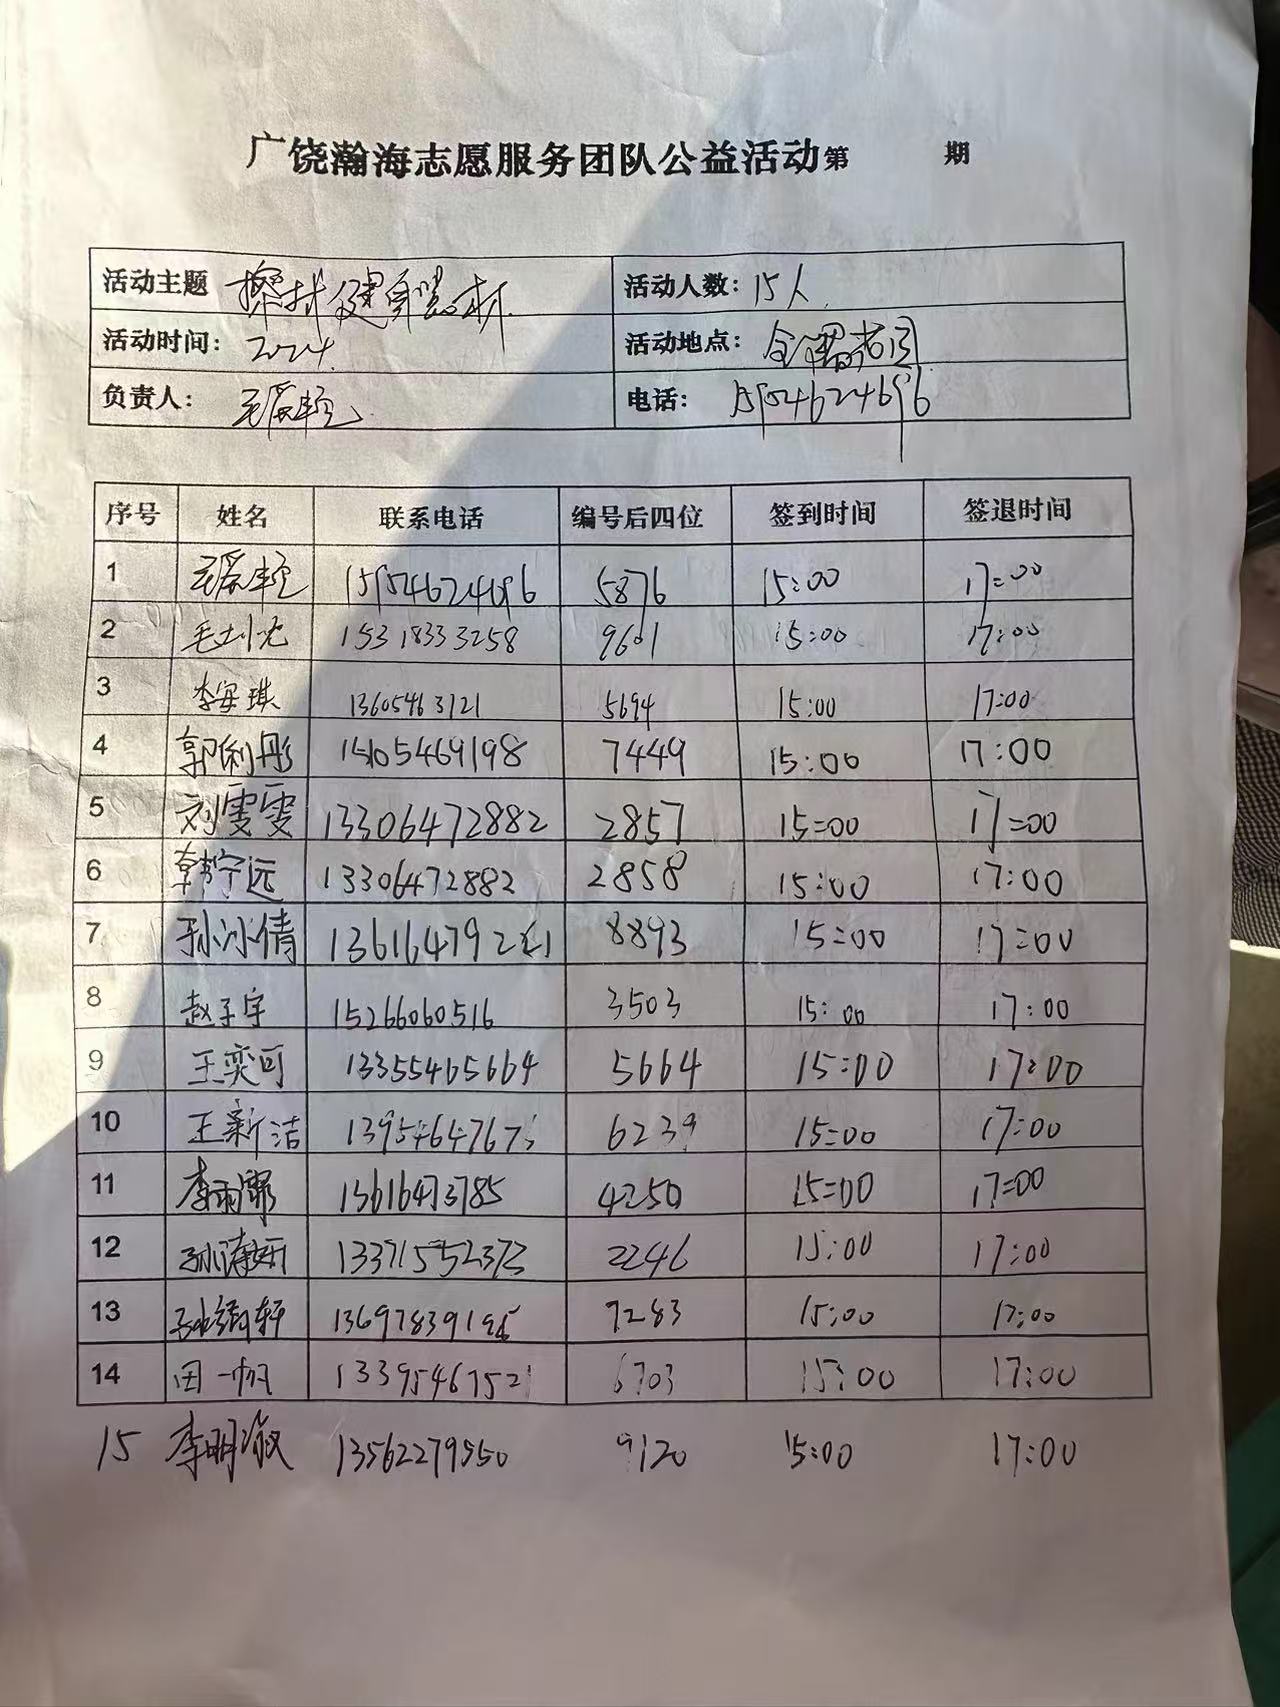 广饶瀚海志愿服务团队公益活动第 期
活动主题 擦拭健身器材 活动人数：15人
活动时间： 2024. 活动地点：
负责人： 电话： 15954624696
序号 姓名 联系电话 编号后四位 签到时间 签退时间
1 15954624696 5876 15:00 17:00
2 15318333258 9601 15:00 17:00
3 李安琪 13605463121 5694 15:00 17:00
4 郭俐彤 15105469198 7449 15:00 17:00
5 刘雯雯 13306472882 2857 15:00 17:00
6 韩宁远 13306472882 2858 15:00 17:00
7 孙冰倩 8893 15:00 17:00
8 赵子宇 15266060516 3503 15:00 17:00
9 王奕可 13355465664 5664 15:00 17:00
10 王新洁 6239 15:00 17:00
11 13616473785 4250 15:00 17:00
12 13371552372 2246 15:00 17:00
13 7283 15:00 17:00
14 田一帆 13395467521 6703 15:00 17:00
15 李明淑 13562279550 9120 15:00 17:00